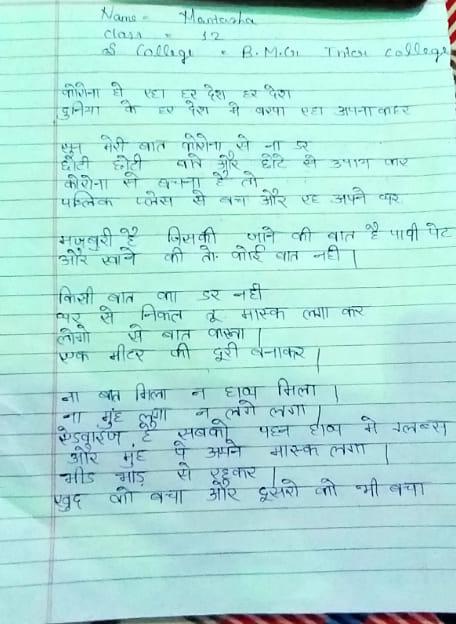 Name = Mantasha
class = 12
College = B.M.G. Inter college
कोरोना हो रहा हर देश हर देश
दुनिया के हर देश में बरपा रहा अपना कहर
सुन मेरी बात कोरोना से ना डर
छोटी छोटी बाते और छोटे से उपाय कर
कोरोना से बचना है तो
पब्लिक प्लेस से बच और रह अपने घर
मजबुरी है जिसकी जाने की बात है पापी पेट
और खाने की तो कोई बात नही |
किसी बात का डर नही
घर से निकल तू मास्क लगा कर
लोगो से बात करना |
एक मीटर की दूरी बनाकर |
ना गले मिला न हाथ मिला |
ना मुंह लगा न लगे लगा |
एडवाइज है सबको पहन हाथ में ग्लब्स
और मुंह पे अपने मास्क लगा |
भीड भाड़ से
खुद को बचा और दूसरो को भी बचा